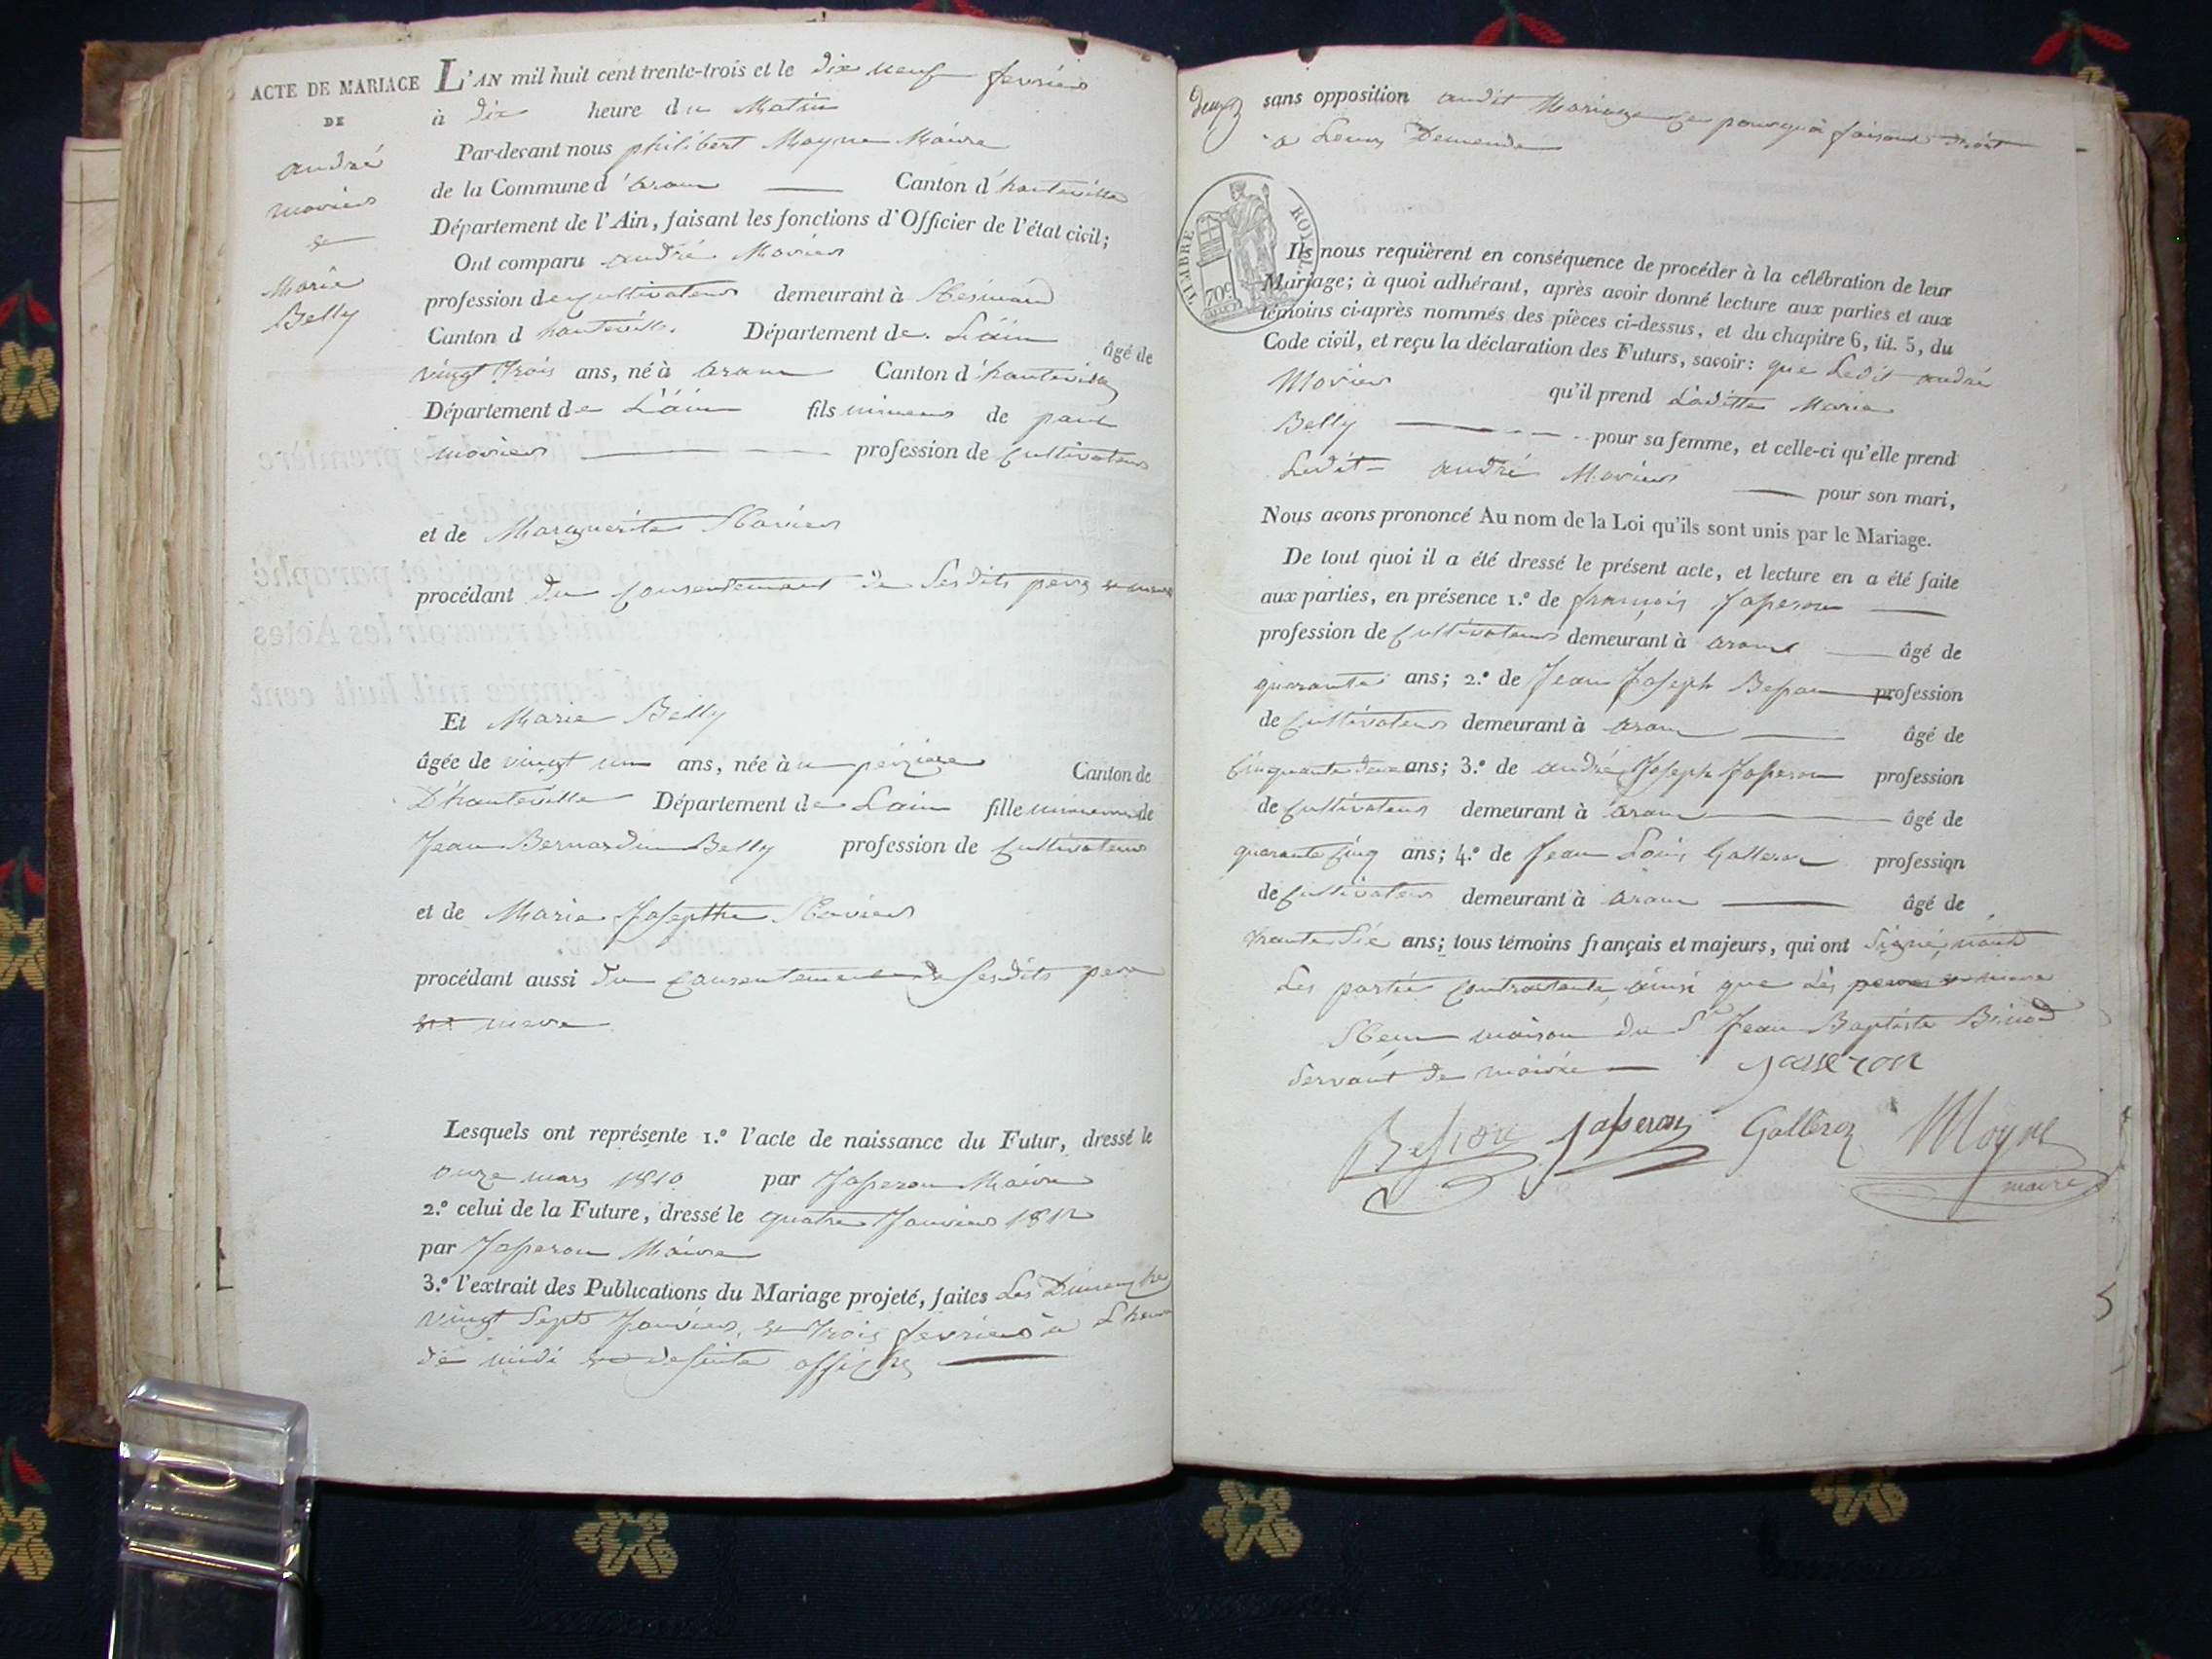 ACTE DE MARIAGE
DE
andré
moviers
et
Marie
Belly
L'AN mil huit cent trente-trois et le dix neuf fevrier
à dix heure du Matin
Par-devant nous philibert Moyne Maire
de la Commune d'aranc Canton d'hauteville
Département de l'Ain, faisant les fonctions d'Officier de l'état civil;
Ont comparu andré
profession de cultivateur demeurant à
Canton d hauteville. Département de L'ain
âgé de
vingt trois ans, né à aranc Canton d'hauteville
Département de L'ain fils mineur de paul
profession de Cultivateur
et de Marguerite
procédant du Consentement de Sesdits pere et mere
Et Marie Belly
âgée de vingt un ans, née à Canton de
D'hauteville Département de Lain fille mineure de
Jean Bernardin Belly profession de Cultivateur
et de Marie Josephte
procédant aussi du Consentement de Sesdits pere
et mere
Lesquels ont représente 1.º l'acte de naissance du Futur, dressé le
onze mars 1810 par Jasseron Maire
2.º celui de la Future, dressé le quatre Janvier 1812
par Jasseron Maire
3.º l'extrait des Publications du Mariage projeté, faites Les Dimanches
vingt Sept Janvier, et trois fevrier à L'heure
de midi et affiches
deux
sans opposition audit Mariage pourquoi faisant droit
a Leur Demande
TIMBRE ROYAL
70c
Ils nous requièrent en conséquence de procéder à la célébration de leur
Mariage; à quoi adhérant, après avoir donné lecture aux parties et aux
témoins ci-après nommés des pièces ci-dessus, et du chapitre 6, tit. 5, du
Code civil, et reçu la déclaration des Futurs, savoir: que Ledit andré
qu'il prend Laditte Marie
Belly pour sa femme, et celle-ci qu'elle prend
Ledit andré pour son mari,
Nous avons prononcé Au nom de la Loi qu'ils sont unis par le Mariage.
De tout quoi il a été dressé le présent acte, et lecture en a été faite
aux parties, en présence 1.º de françois Jasseron
profession de Cultivateur demeurant à aranc âgé de
quarante ans; 2.º de Jean Joseph profession
de Cultivateur demeurant à aranc âgé de
Cinquante deux ans; 3.º de andré Joseph Jasseron profession
de Cultivateur demeurant à aranc âgé de
quarante Cinq ans; 4.º de Jean Louis Galleron profession
de Cultivateur demeurant à aranc âgé de
trante Sie ans; tous témoins français et majeurs, qui ont Signé, nont
Les partie Contractante ainsi que Les peres et mere
maison du Sr Jean Baptiste Binod
Servant de mairie Jasseron
Jasseron Galleron Moyne
maire